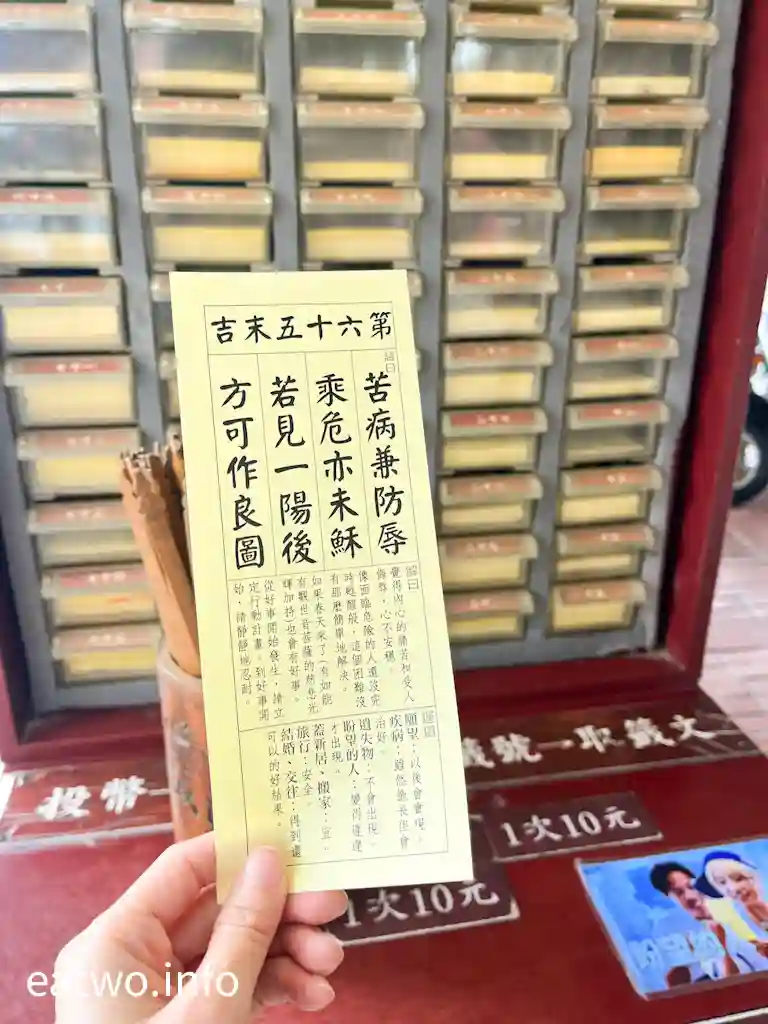 第六十五末吉
詩曰
苦病兼防辱
乘危亦未穌
若見一陽後
方可作良圖
覺得內心的痛苦和受人
侮辱，心不安穩。
像面臨危險的人還沒完
有那麼簡單地解決。
如果春天來了（有如能
有觀世音菩薩的慈悲光
輝加持）也會有好事。
從好事開始發生，請立
定行動計畫。到好事開
始，請靜靜地忍耐。
願望：以後會會現。
疾病：雖然拖長但會
治好。
遺失物：不會出現。
盼望的人：變得遲遲
才出現。
蓋新居、搬家：宜。
旅行：安全。
結婚、交往：得到還
可以的好結果。
投幣
籤號一取籤文
1次10元
1次10元
eatwo.info